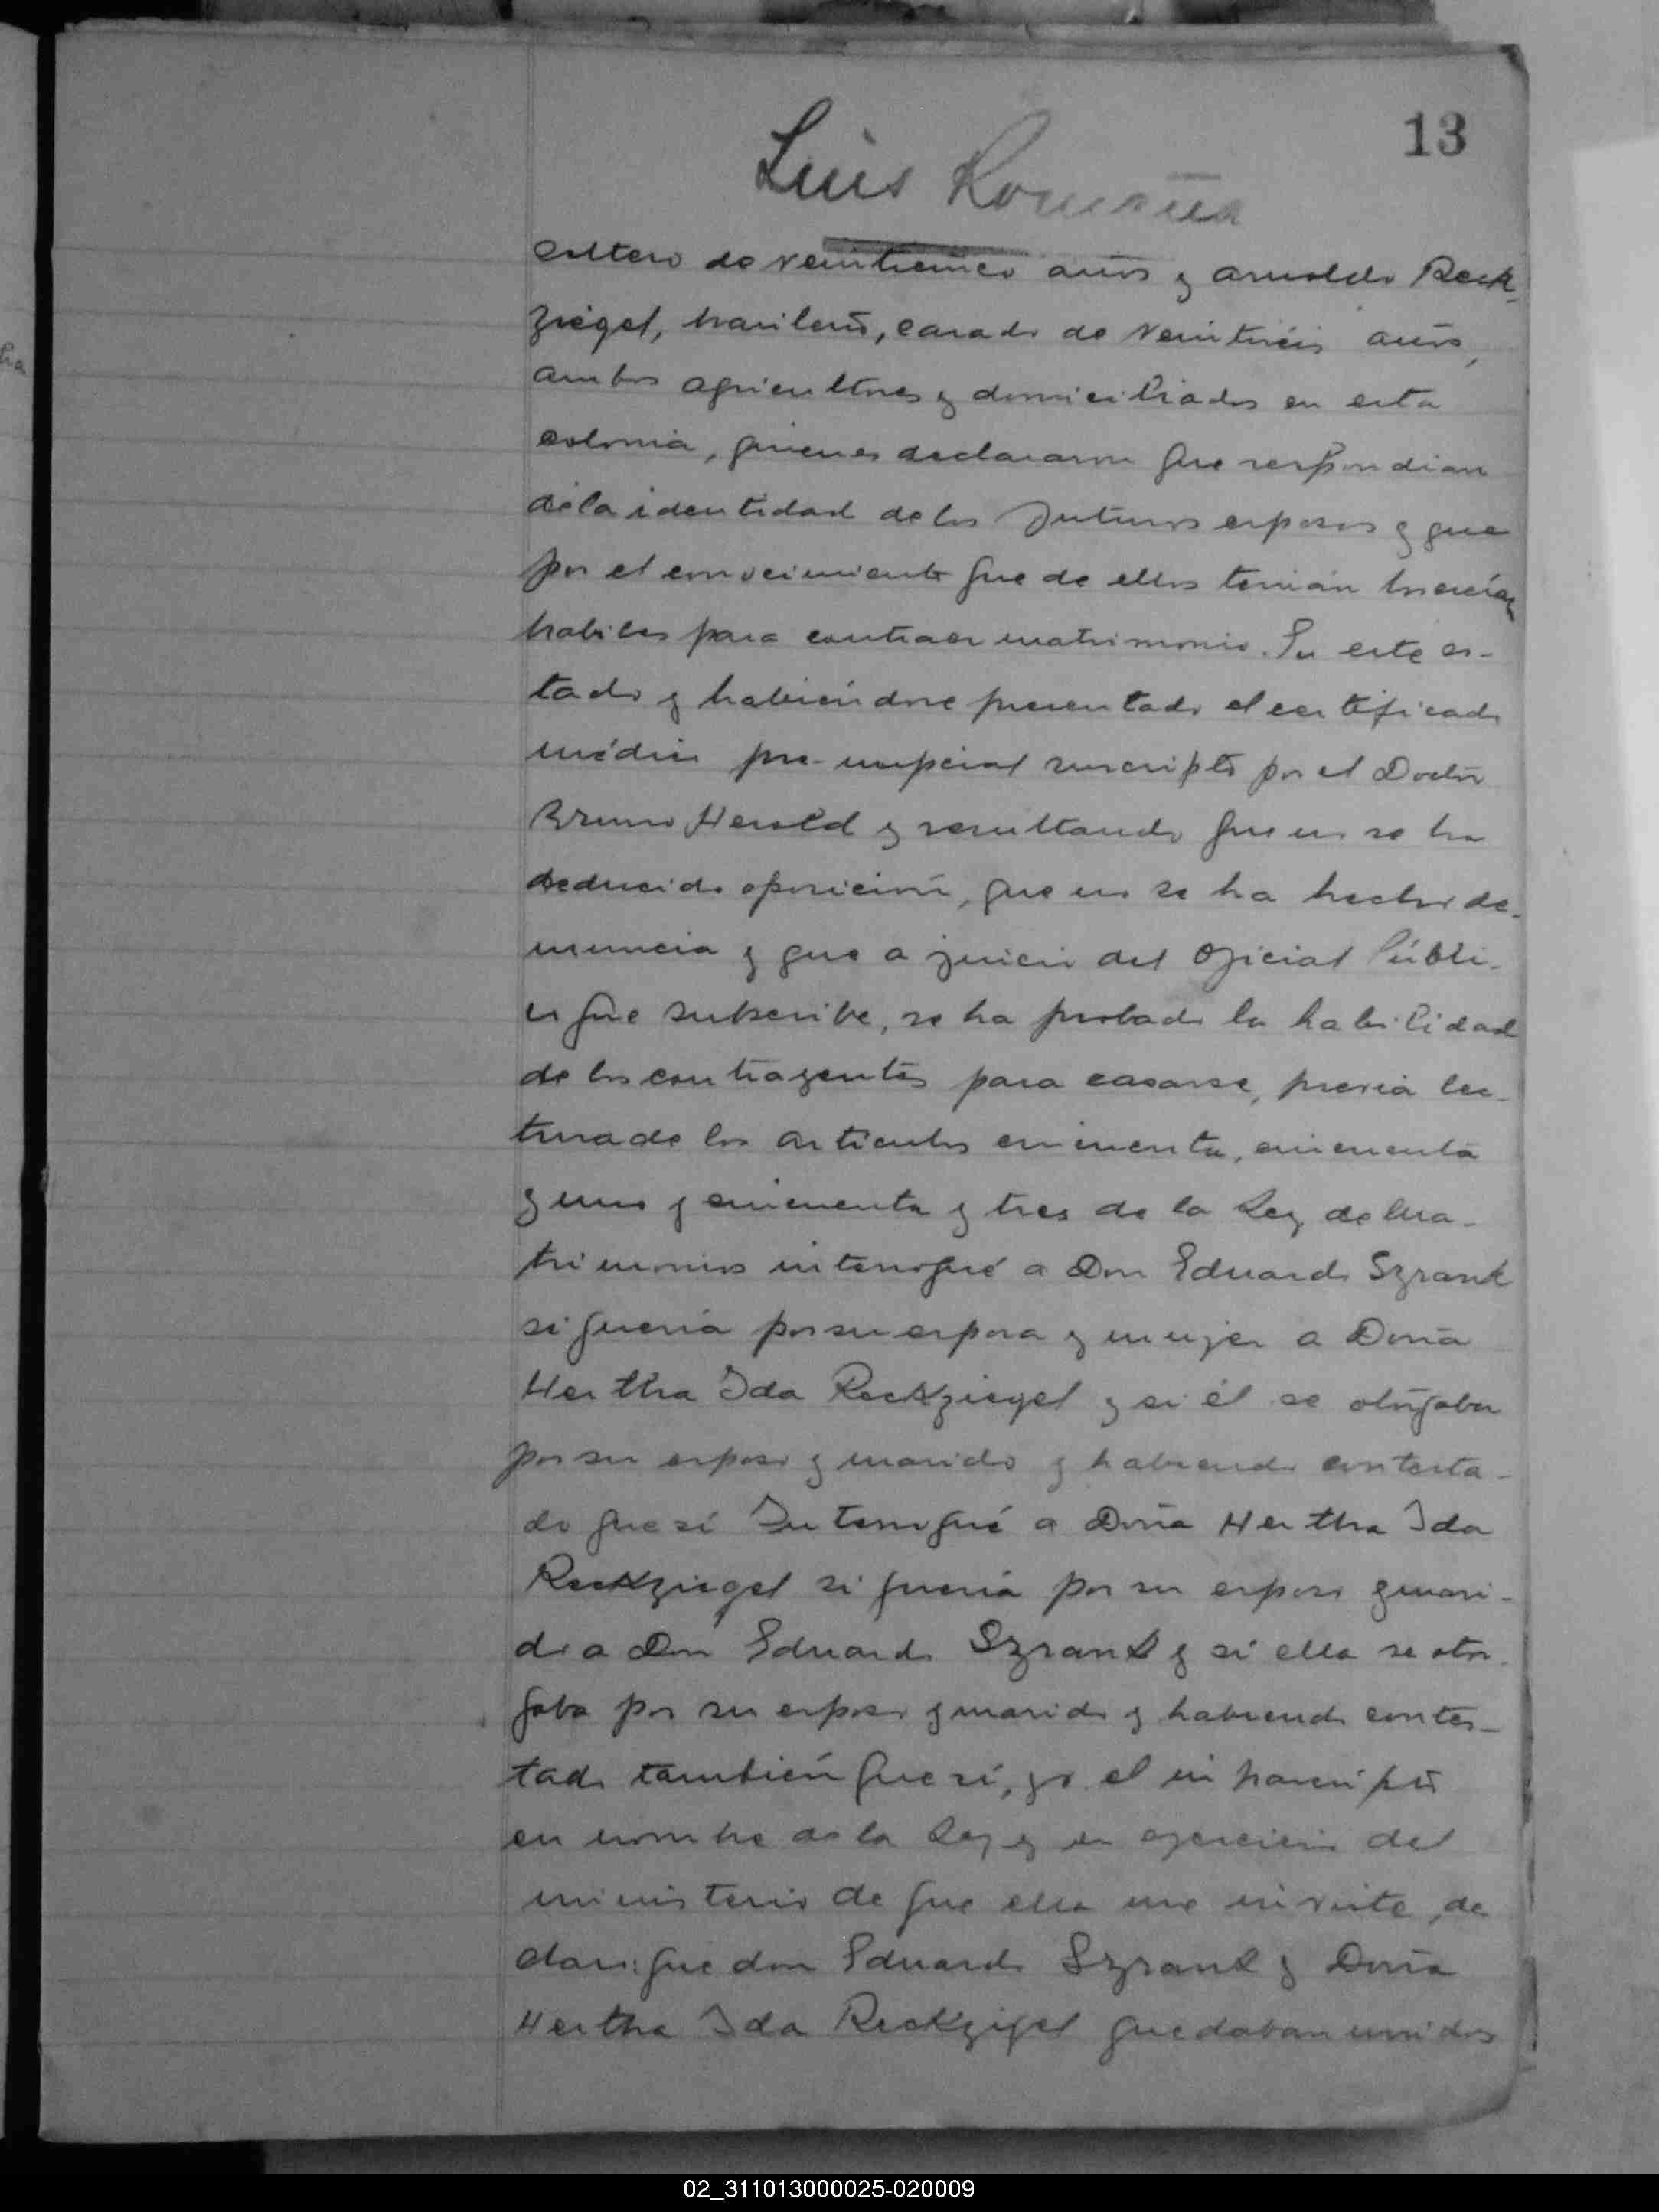 13
Luis Romaña
soltero de veinticinco años y Arnoldo Reck-
ziegel, brasileño, casado de veintiséis años,
ambos agricultores y domiciliados en esta
colonia, quienes declararon que respondian
de la identidad de los futuros esposos y que
por el conocimiento que de ellos tenían los creían
habiles para contraer matrimonio. En este es-
tado y habiéndose presentado el certificado
médico pre-nupcial suscripto por el Doctor
Bruno Herold y resultando que no se ha
deducido oposición, que no se ha hecho de-
nuncia y que a juicio del Oficial Públi-
co que subscribe, se ha probado la habilidad
de los contrayentes para casarse, previa lec-
tura de los artículos cincuenta, cincuenta
y uno y cincuenta y tres de la Ley de Ma-
trimonios interrogué a Don Eduardo Szrank
si quería por su esposa y mujer a Doña
Hertha Ida Reckziegel y si él se otorgaba
por su esposo y marido y habiendo contesta-
do que sí Interrogué a Doña Hertha Ida
Reckziegel si quería por su esposo y mari-
do a Don Eduardo Szrank y si ella se otor-
gaba por su esposo y marido y habiendo contes-
tado también que sí, yo el infrascripto
en nombre de la Ley y en ejercicio del
ministerio de que ella me inviste, de
claro: que don Eduardo Szrank y Doña
Hertha Ida Reckzigel quedaban unidos
02_311013000025-020009